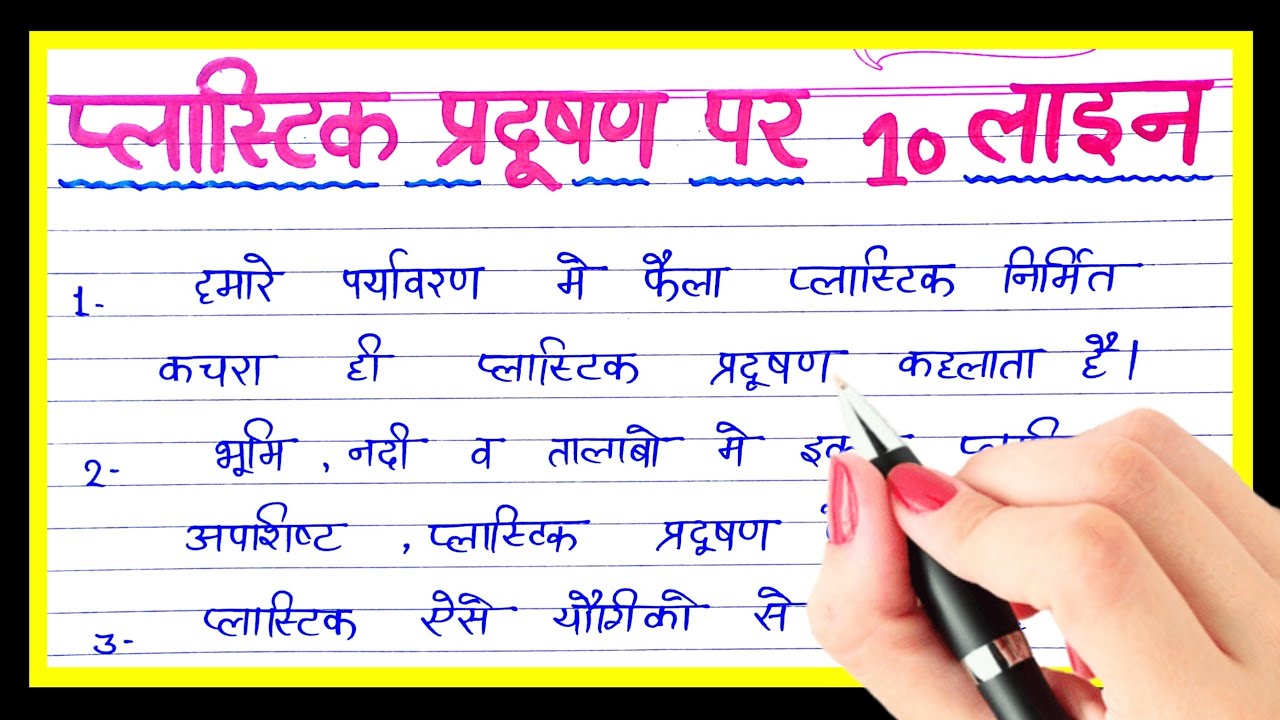 प्लास्टिक प्रदूषण पर 10 लाइन
1- हमारे पर्यावरण मे फैला प्लास्टिक निर्मित
कचरा ही प्लास्टिक प्रदूषण कहलाता है।
2- भूमि , नदी व तालाबो मे
अपशिष्ट , प्लास्टिक प्रदूषण
3- प्लास्टिक ऐसे यौगिको से